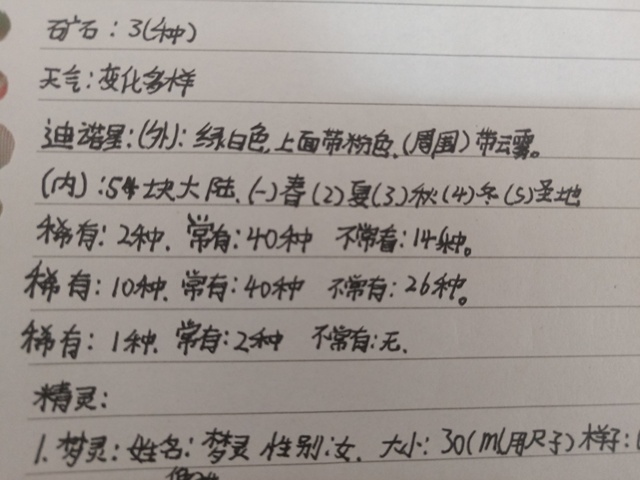 矿石：3(种)
天气：变化多样
迪诺星：(外)：绿白色，上面带粉色，(周围)带云雾。
(内)：5块大陆，(一)春(2)夏(3)秋(4)冬(5)圣地
稀有：2种，常有：40种 不常看：14种。
稀有：10种，常有：40种 不常有：26种。
稀有：1种，常有：2种 不常有：无．
精灵：
1．梦灵：姓名：梦灵 性别：女． 大小：30(M(用尺子) 样子：